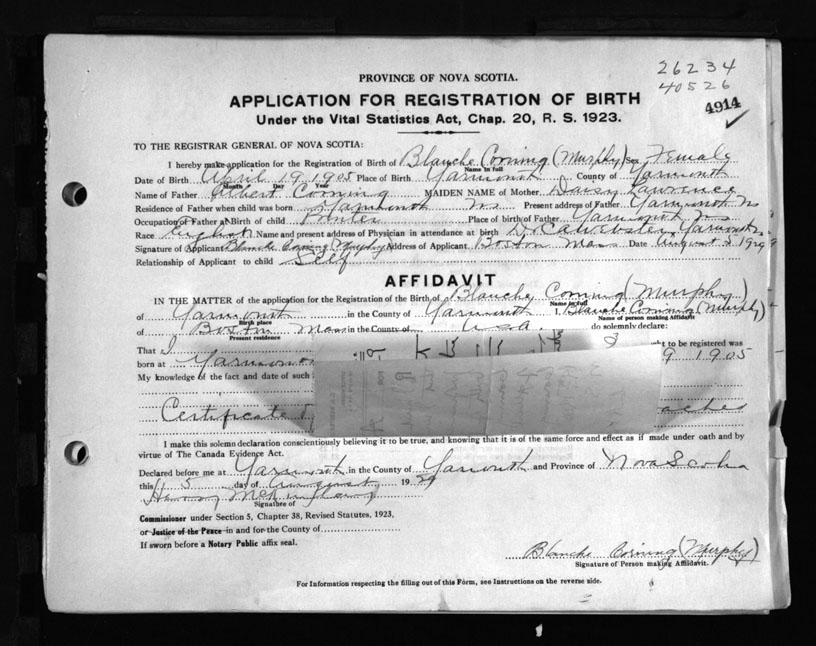 26234
40526
4914
PROVINCE OF NOVA SCOTIA.
APPLICATION FOR REGISTRATION OF BIRTH
Under the Vital Statistics Act, Chap. 20, R. S. 1923.
TO THE REGISTRAR GENERAL OF NOVA SCOTIA:
I hereby make application for the Registration of Birth of Blanche Corning (Murphy) Sex Female
Name in full
Date of Birth April 19 1905 Place of Birth Yarmouth County of Yarmouth
Month Day Year
Name of Father Albert Corning MAIDEN NAME of Mother Daisy Lawrence
Residence of Father when child was born Yarmouth NS Present address of Father Yarmouth NS
Occupation of Father at Birth of child Place of birth of Father Yarmouth NS
Race English Name and present address of Physician in attendance at birth Dr CA Webster Yarmouth
Signature of Applicant Blanche Corning (Murphy) Address of Applicant Boston Mass Date August 5 1929
Relationship of Applicant to child Self
AFFIDAVIT
IN THE MATTER of the application for the Registration of the Birth of Blanche Corning (Murphy)
Name in full
of Yarmouth in the County of Yarmouth I, Blanche Corning (Murphy)
Birth place Name of person making Affidavit
of Boston Mass in the County of USA. do solemnly declare:
Present residence
That I ght to be registered was
born at Yarmou 9 1905
My knowledge of the fact and date of such
Certificate
I make this solemn declaration conscientiously believing it to be true, and knowing that it is of the same force and effect as if made under oath and by
virtue of The Canada Evidence Act.
Declared before me at Yarmouth in the County of Yarmouth and Province of Nova Scotia
this 5 day of August 1929
Signature of
Commissioner under Section 5, Chapter 38, Revised Statutes, 1923,
or Justice of the Peace in and for the County of
If sworn before a Notary Public affix seal.
Blanche Corning (Murphy)
Signature of Person making Affidavit.
For Information respecting the filling out of this Form, see Instructions on the reverse side.